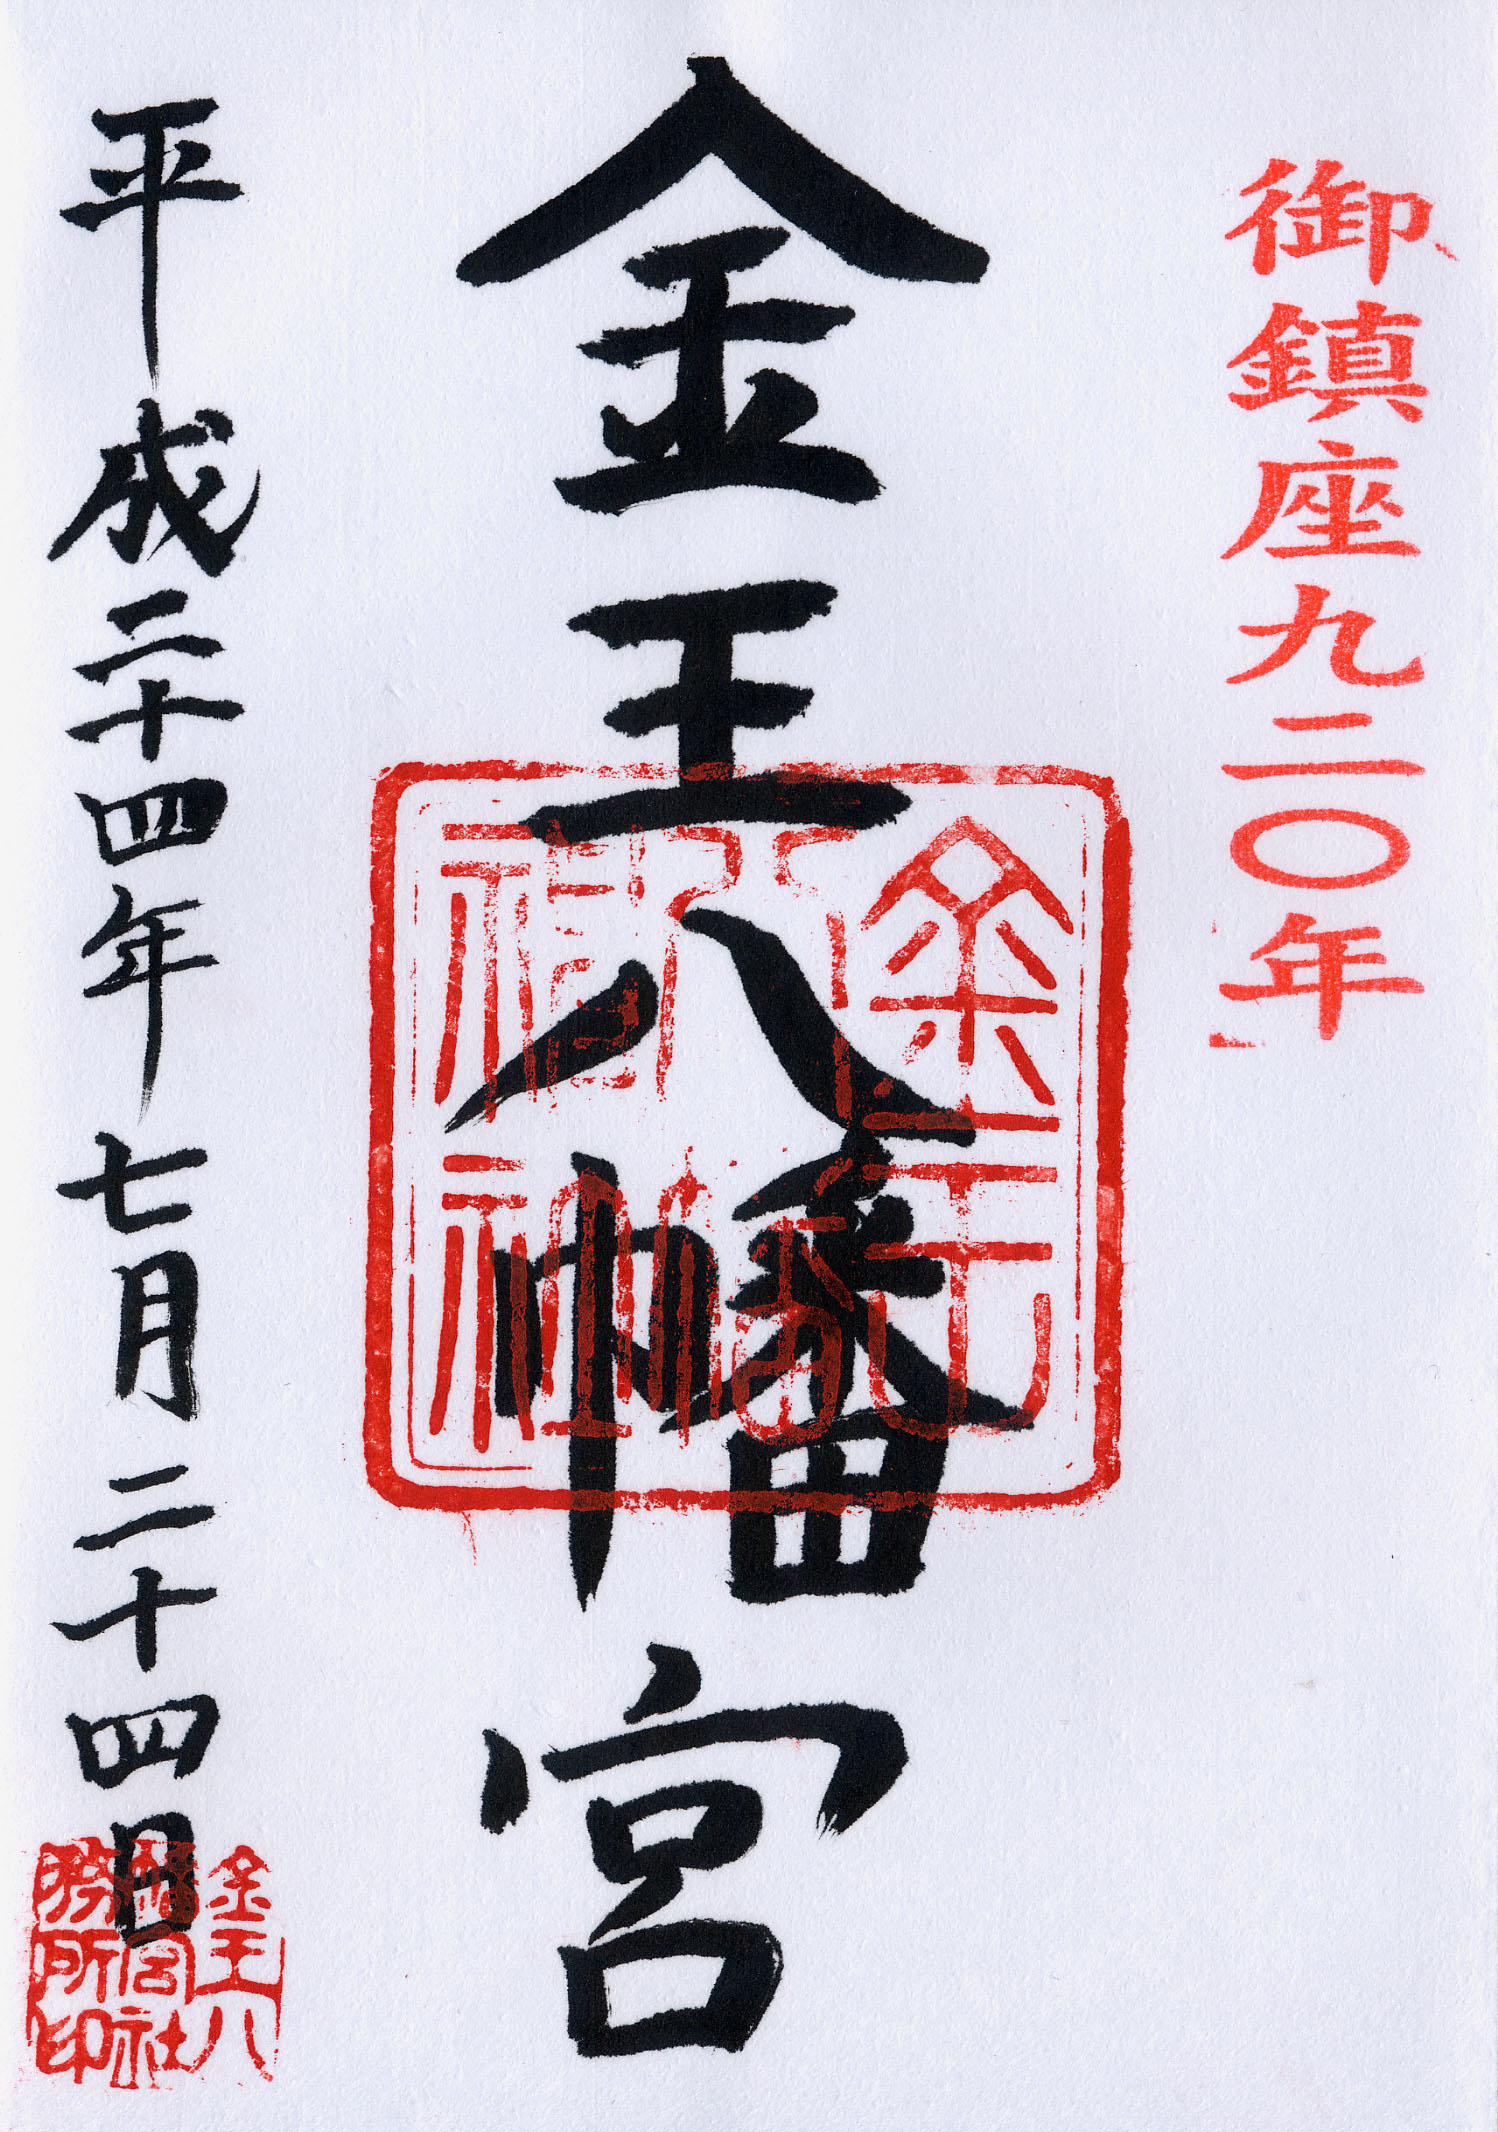 御鎮座九二〇年
金王八幡宮
平成二十四年七月二十四日
金王八
幡宮社
務所印